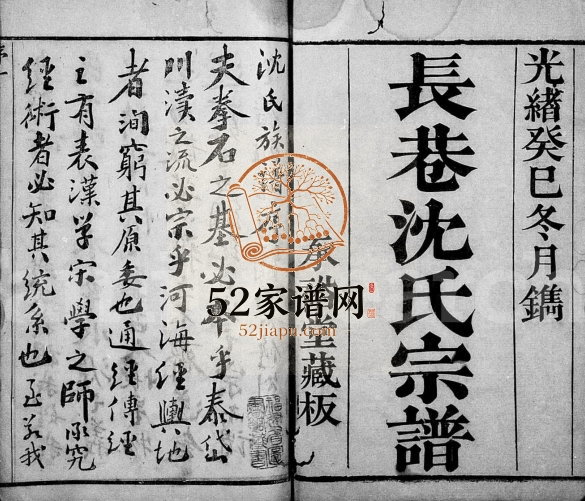 光緒癸巳冬月鐫
長巷沈氏宗譜
承堂藏板
沈氏族譜序
夫拳石之基必本乎泰岱
川瀆之流必宗乎河海經輿地
者洵窮其原委也通經傳經
之有表漢學宋學之師承究
經術者必知其統系也至若我
52家谱网
52jiapu.com